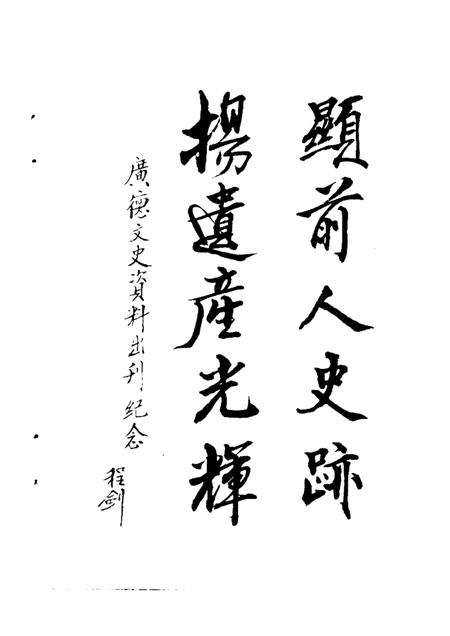 顯前人史跡
揚遺產光輝
廣德文史資料出刊纪念
程剑